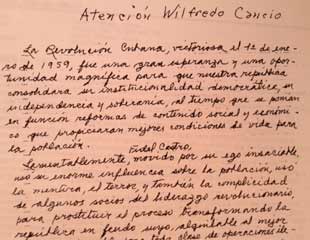 Atención Wilfredo Cancio
La Revolución Cubana, victoriosa el 1º de ene-
ro de 1959, fue una gran esperanza y una opor-
tunidad magnífica para que nuestra república
consolidara su institucionalidad democrática, su
independencia y soberanía, al tiempo que se ponían
en función reformas de contenido social y económi-
co que propiciaran mejores condiciones de vida para
la población.
Fidel Castro,
Lamentablemente, movido por su ego insaciable,
usó su enorme influencia sobre la población, usó
la mentira, el terror, y también la complicidad
de algunos socios del liderazgo revolucionario,
para prostituir el proceso transformando la
república en feudo suyo, alquilable al mejor
toda clase de operaciones ile-